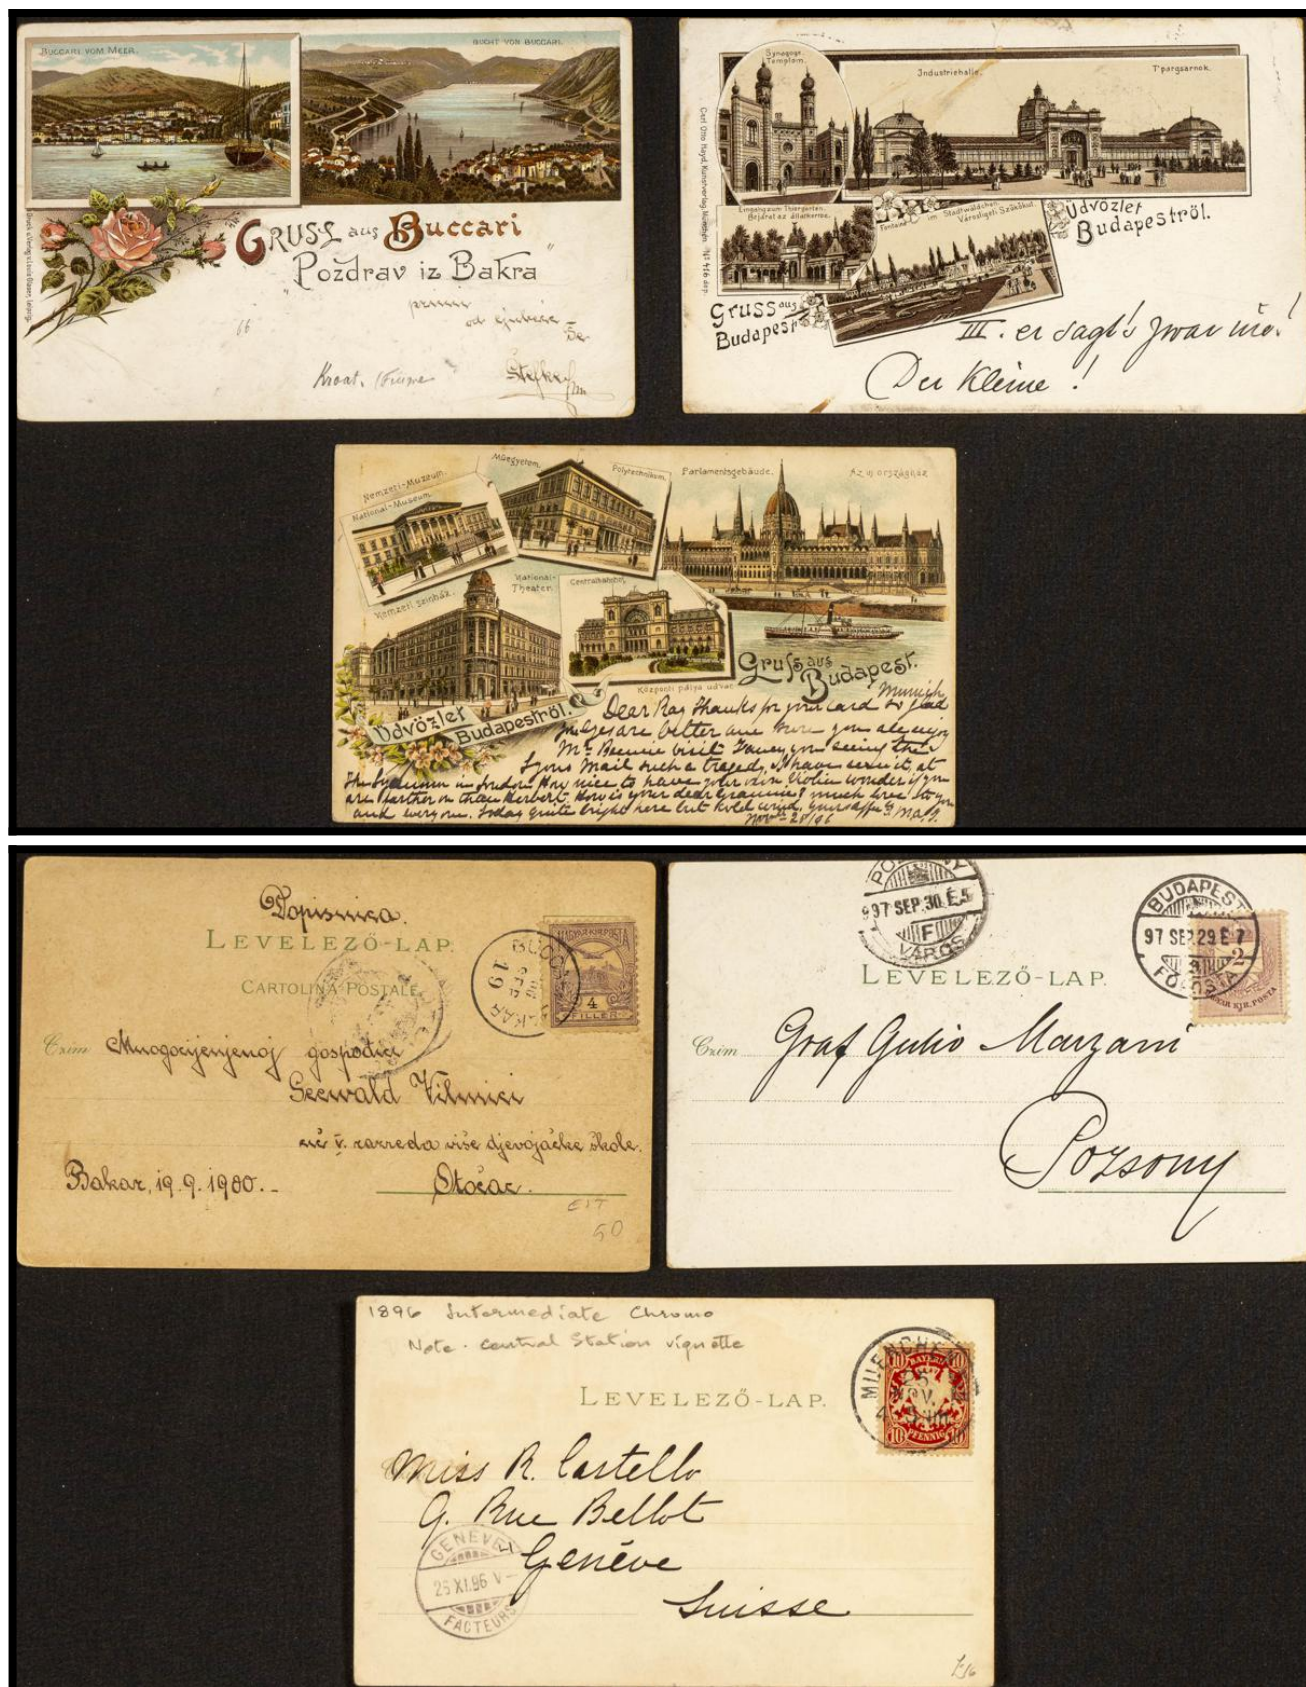 BUCCARI VOM MEER.
BUCHT VON BUCCARI.
GRUSS aus Buccari
"Pozdrav iz Bakra"
primi
od
Kroat. Fiume
66
Synagoge.
Templom.
Industriehalle.
T'pargsarnok.
Carl Otto Hayd, Kunstverlag, München № 416 dep.
Eingang zum Thiergarten.
Bejárat az állatkertbe.
Fontaine im Stadtwäldchen.
Városligeti Szökőkút.
Üdvözlet
Budapestről.
Gruss aus
Budapest
III. er sagt's zwar nie!
Der Kleine!
Nemzeti-Muzeum.
National-Museum.
Műegyetem.
Polytechnikum.
Parlamentsgebäude.
Az uj országház
Nemzeti szinház.
National-
Theater.
Centralbahnhof.
Központi pálya udvar.
Gruss aus
Budapest.
Üdvözlet
Budapestről.
Munich
Dear Ray Thanks for your card so glad
eyes are better and hope you are
Mr. visit you seeing the
Lyons Mail such a tragedy. I have seen it at
the Lyceum in London How nice to have your own Violin wonder if you
are farther on than Herbert. How is your dear Grannie? much love to you
and everyone. Today quite bright here but cold wind.
Nov 96
Dopisnica.
LEVELEZŐ-LAP.
CARTOLINA-POSTALE.
MAGYAR KIR. POSTA
4
FILLER
SEP
19
Czim Mnogocijenjenoj gospodici
Seewald Vilmici
uč. V. razreda više djevojačke škole.
Bakar, 19. 9. 1900.-
Otočac.
50
997 SEP. 30. E. 5
F
VÁROS
BUDAPEST
97 SEP. 29 E 7
FŐPOSTA
2
MAGYAR KIR. POSTA
LEVELEZŐ-LAP.
Czim Graf Gulio Marzani
Pozsony
1896 Intermediate Chromo
Note. central Station vignette
LEVELEZŐ-LAP.
MUENCHEN
NOV.
10 BAYERN 10
10 PFENNIG 10
Miss R. Castello
9. Rue Bellot
Genève
Suisse
GENÈVE
26 XI.96 V-
FACTEURS